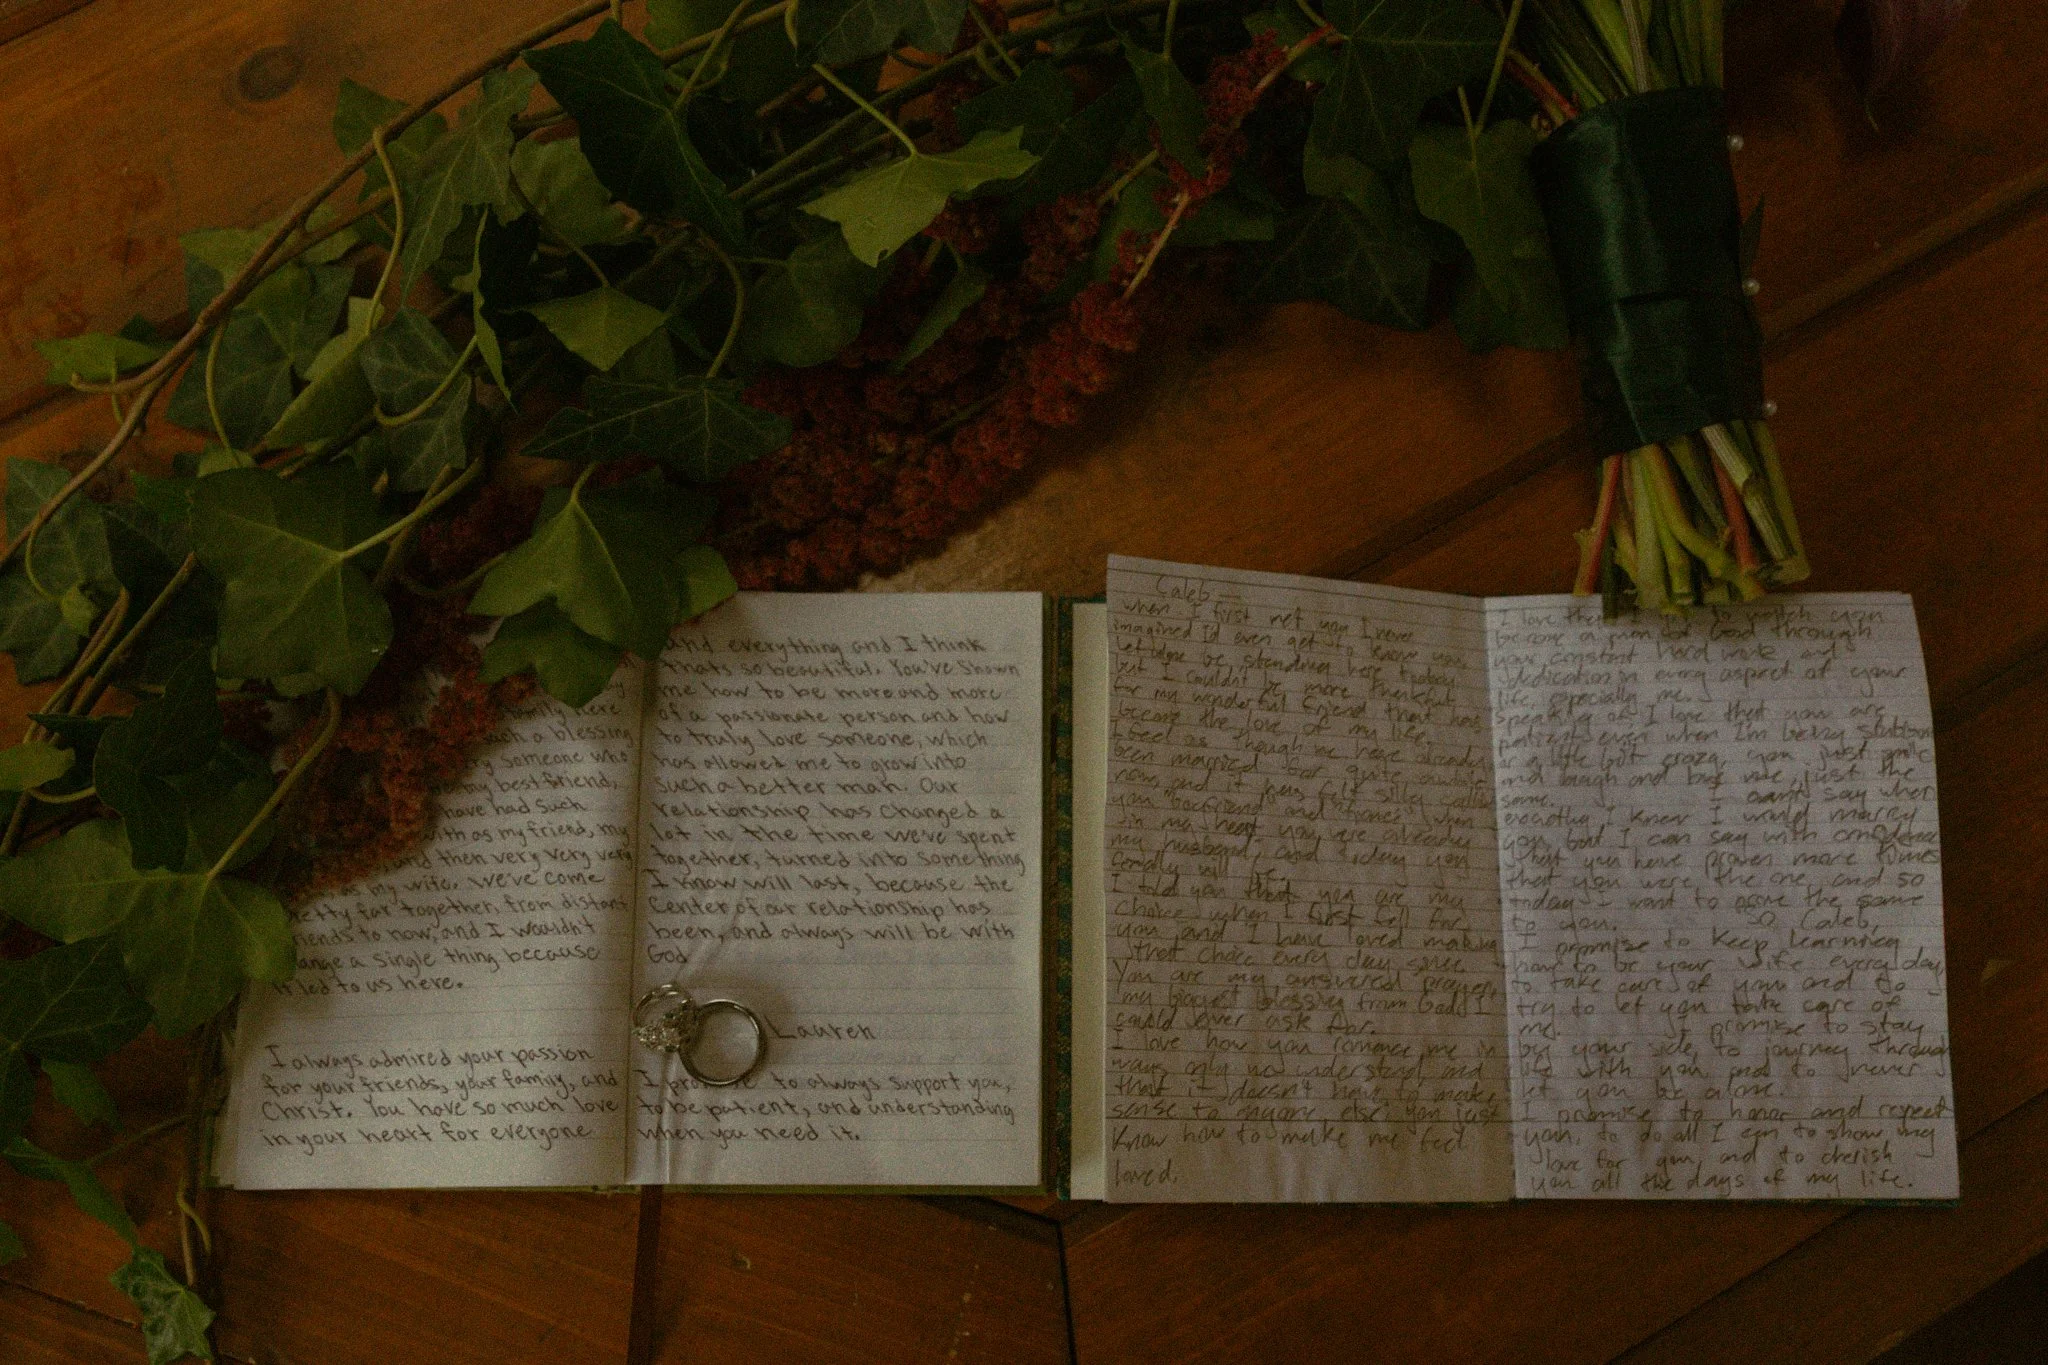 family here
such a blessing
someone who
my best friend,
have had such
with as my friend, my
and then very very very
as my wife. We've come
pretty far together, from distant
friends to now, and I wouldn't
change a single thing because
it led to us here.
I always admired your passion
for your friends, your family, and
Christ. You have so much love
in your heart for everyone
and everything and I think
thats so beautiful. You've shown
me how to be more and more
of a passionate person and how
to truly love someone, which
has allowed me to grow into
such a better man. Our
relationship has changed a
lot in the time we've spent
together, turned into something
I know will last, because the
center of our relationship has
been, and always will be with
God.
Lauren
I promise to always support you,
to be patient, and understanding
when you need it.
Caleb —
when I first met you I never
imagined I'd even get to know you
let alone be standing here today
but I couldn't be more thankful
for my wonderful friend that has
become the love of my life.
I feel as though we have already
been married for quite awhile
now, and it has felt silly calling
you "boyfriend" and "fiance" when
in my heart you were already
my husband, and today you
finally will be.
I told you that you are my
choice when I first fell for
you and I have loved making
that choice every day since.
You are my answered prayer,
my biggest blessing from God, I
could ever ask for.
I love how you romance me in
ways only we understand, and
that it doesn't have to make
sense to anyone else. You just
know how to make me feel
loved.
I love that I to watch you
become a man of God through
your constant hard work and
dedication in every aspect of your
life, especially me.
Speaking of I love that you are
patient even when I'm being stubborn
or a little bit crazy, you just smile
and laugh and love me just the
same. I can't say when
exactly I knew I would marry
you, but I can say with confidence
that you have proven more times
that you were the one, and so
today I want to prove the same
to you. So, Caleb,
I promise to keep learning
how to be your wife every day,
to take care of you and to
try to let you take care of
me. I promise to stay
by your side, to journey through
life with you and to never
let you be alone.
I promise to honor and respect
you, to do all I can to show my
love for you, and to cherish
you all the days of my life.